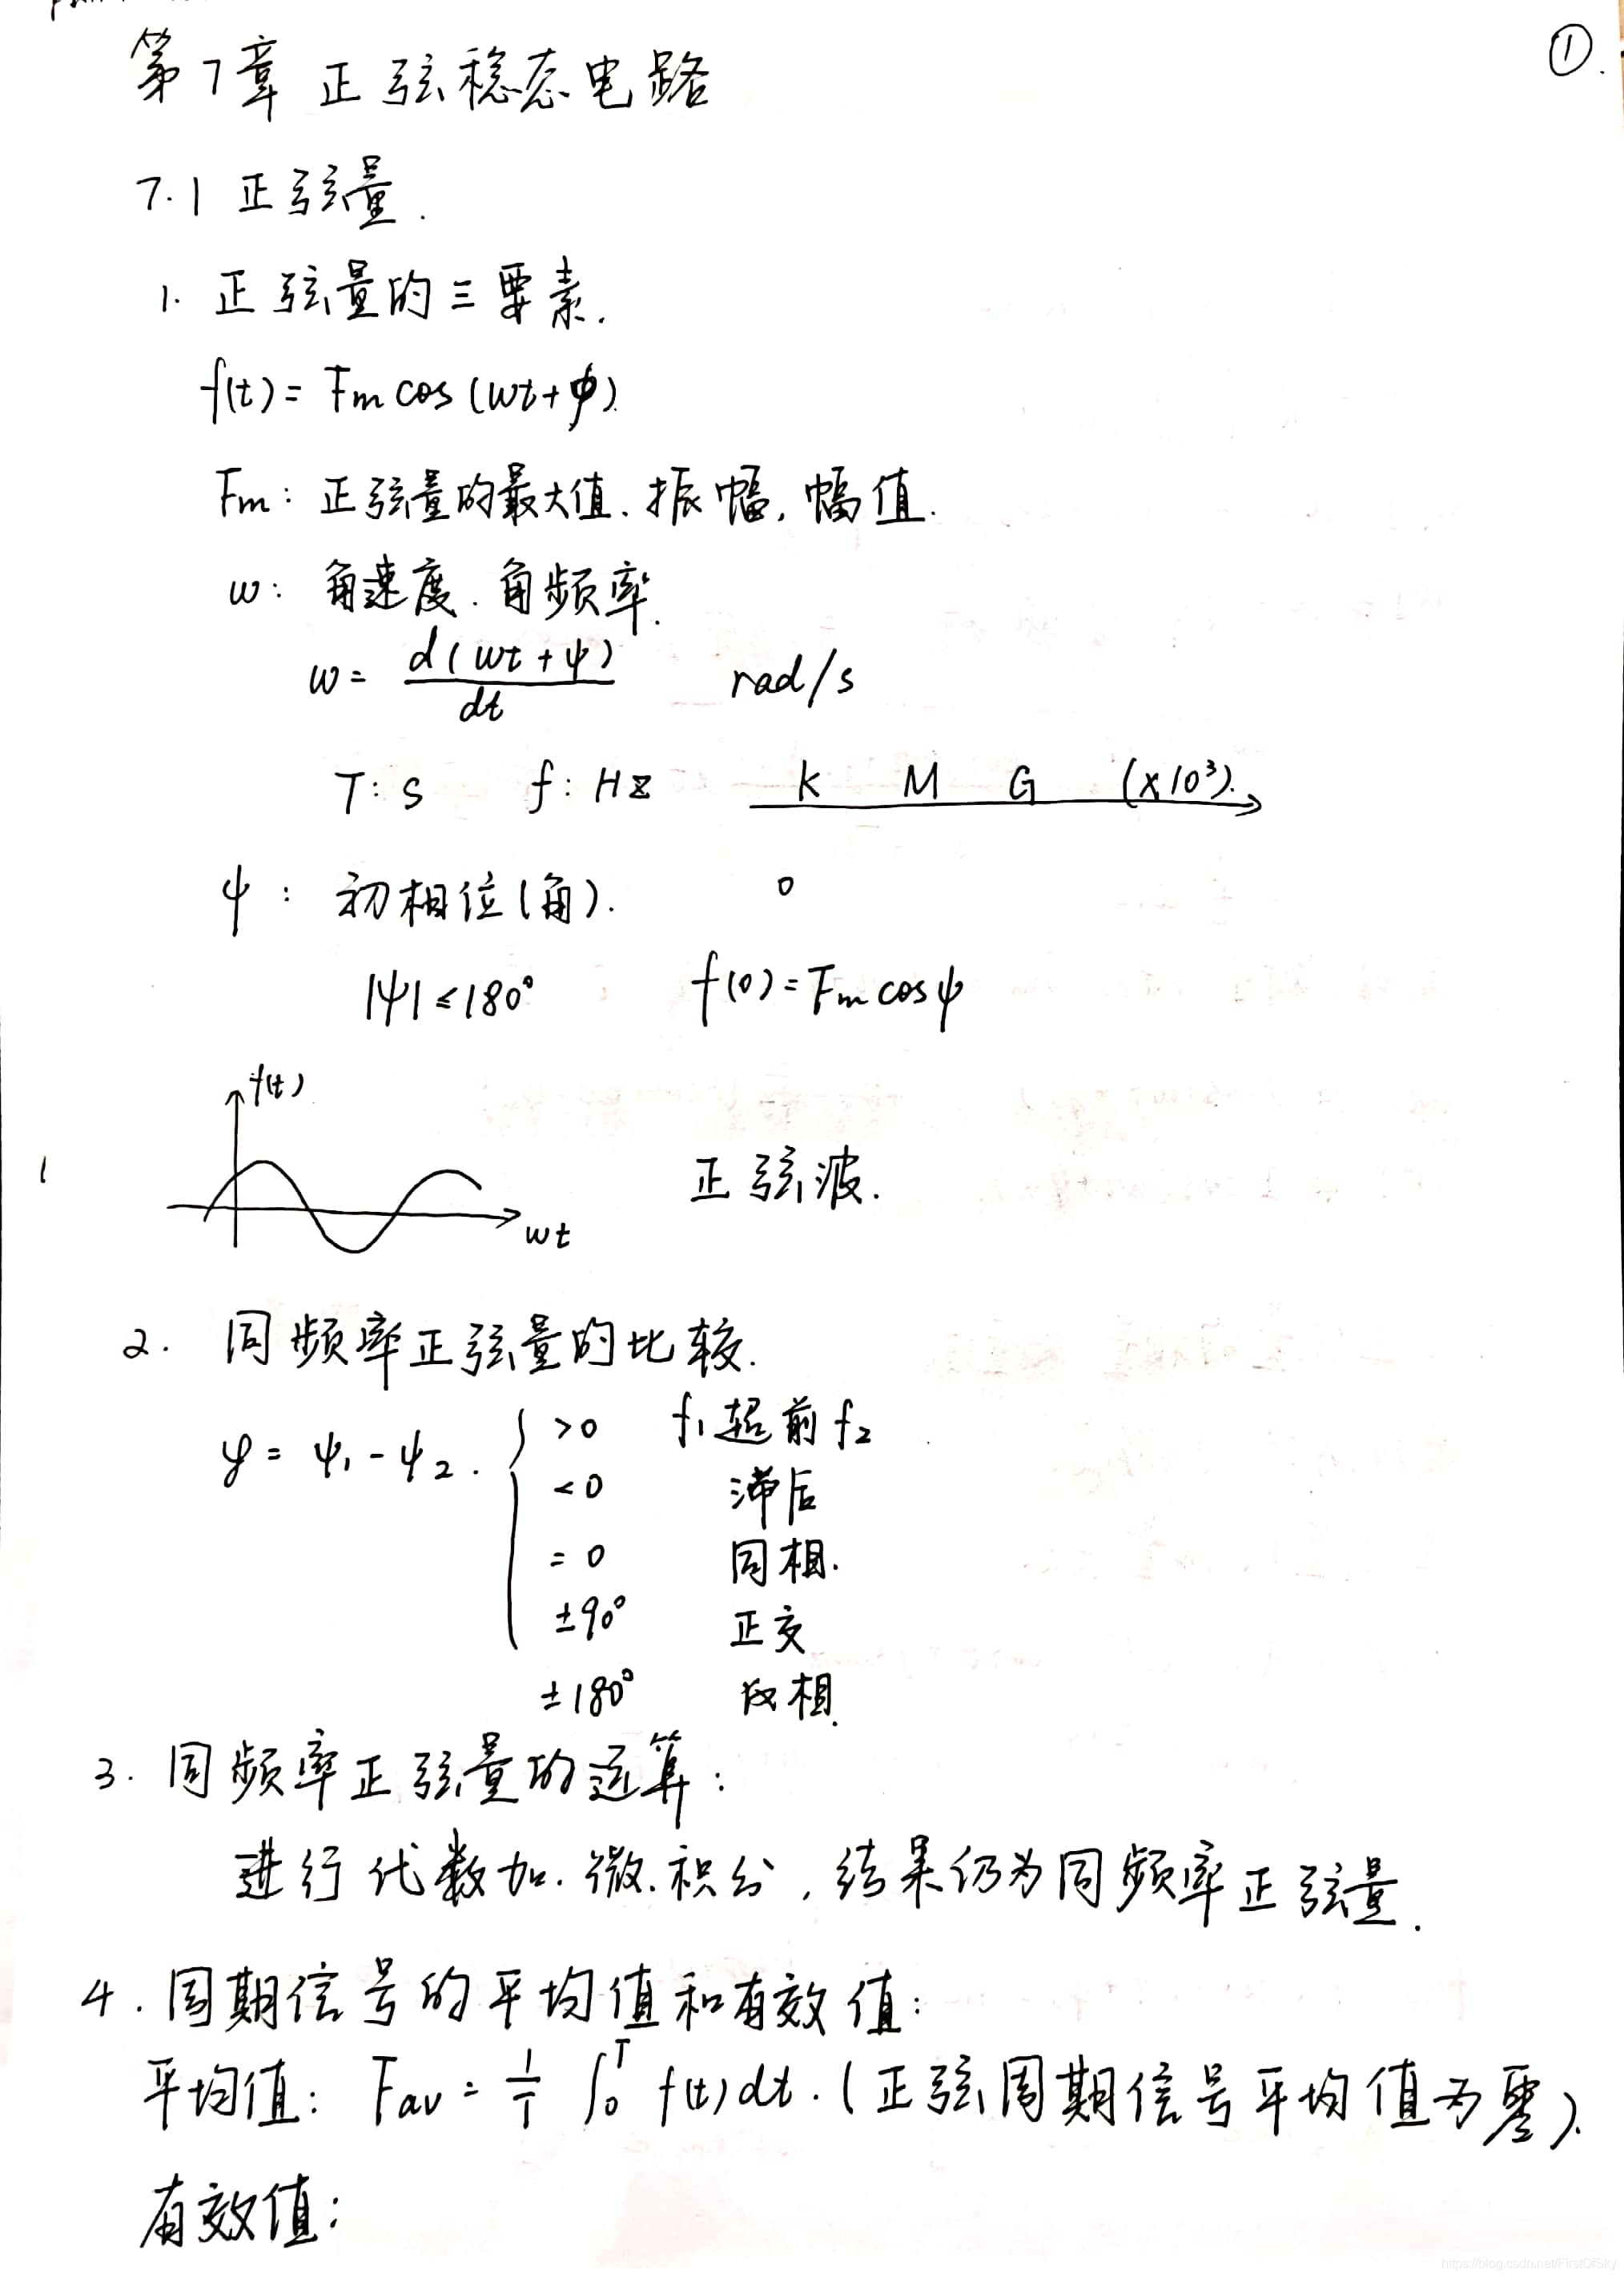 ①.
第7章 正弦稳态电路
7.1 正弦量.
1. 正弦量的三要素.
f(t) = Fm cos (ωt+ψ).
Fm: 正弦量的最大值.振幅,幅值.
ω: 角速度.角频率.
ω = d(ωt+ψ)/dt rad/s
T: s f: Hz K M G (×10³).
ψ: 初相位(角). °
|ψ|≤180° f(0)=Fm cosψ
f(t)
正弦波.
ωt
2. 同频率正弦量的比较.
φ = ψ₁-ψ₂. >0 f₁超前f₂
<0 滞后
=0 同相.
±90° 正交
±180° 反相.
3. 同频率正弦量的运算:
进行代数加.微.积分,结果仍为同频率正弦量.
4. 周期信号的平均值和有效值:
平均值: Fav = 1/T ∫₀ᵀ f(t)dt.(正弦周期信号平均值为零).
有效值:
https://blog.csdn.net/FirstOfSky